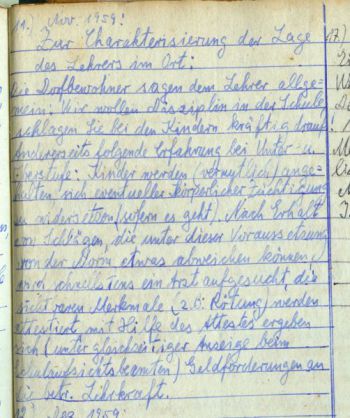 11.) Nov. 1959!
Zur Charakterisierung der Lage
des Lehrers im Ort:
Die Dorfbewohner sagen dem Lehrer allge-
mein: Wir wollen Disziplin in der Schule,
schlagen Sie bei den Kindern kräftig drauf.
Andererseits folgende Erfahrung bei Unter- u.
Oberstufe: Kinder werden (vermutlich) ange-
halten sich eventueller körperlicher Züchtigung
zu widersetzen (sofern es geht). Nach Erhalt
von Schlägen, die unter dieser Voraussetzung
von der Norm etwas abweichen können,
wird schnellstens ein Arzt aufgesucht, die
sichtbaren Merkmale (z.B. Rötung) werden
attestiert mit Hilfe des Attestes ergeben
sich (unter gleichzeitiger Anzeige beim
Schulaufsichtsbeamten) Geldforderungen an
die betr. Lehrkraft.
12. Nov. 1959:
17.)